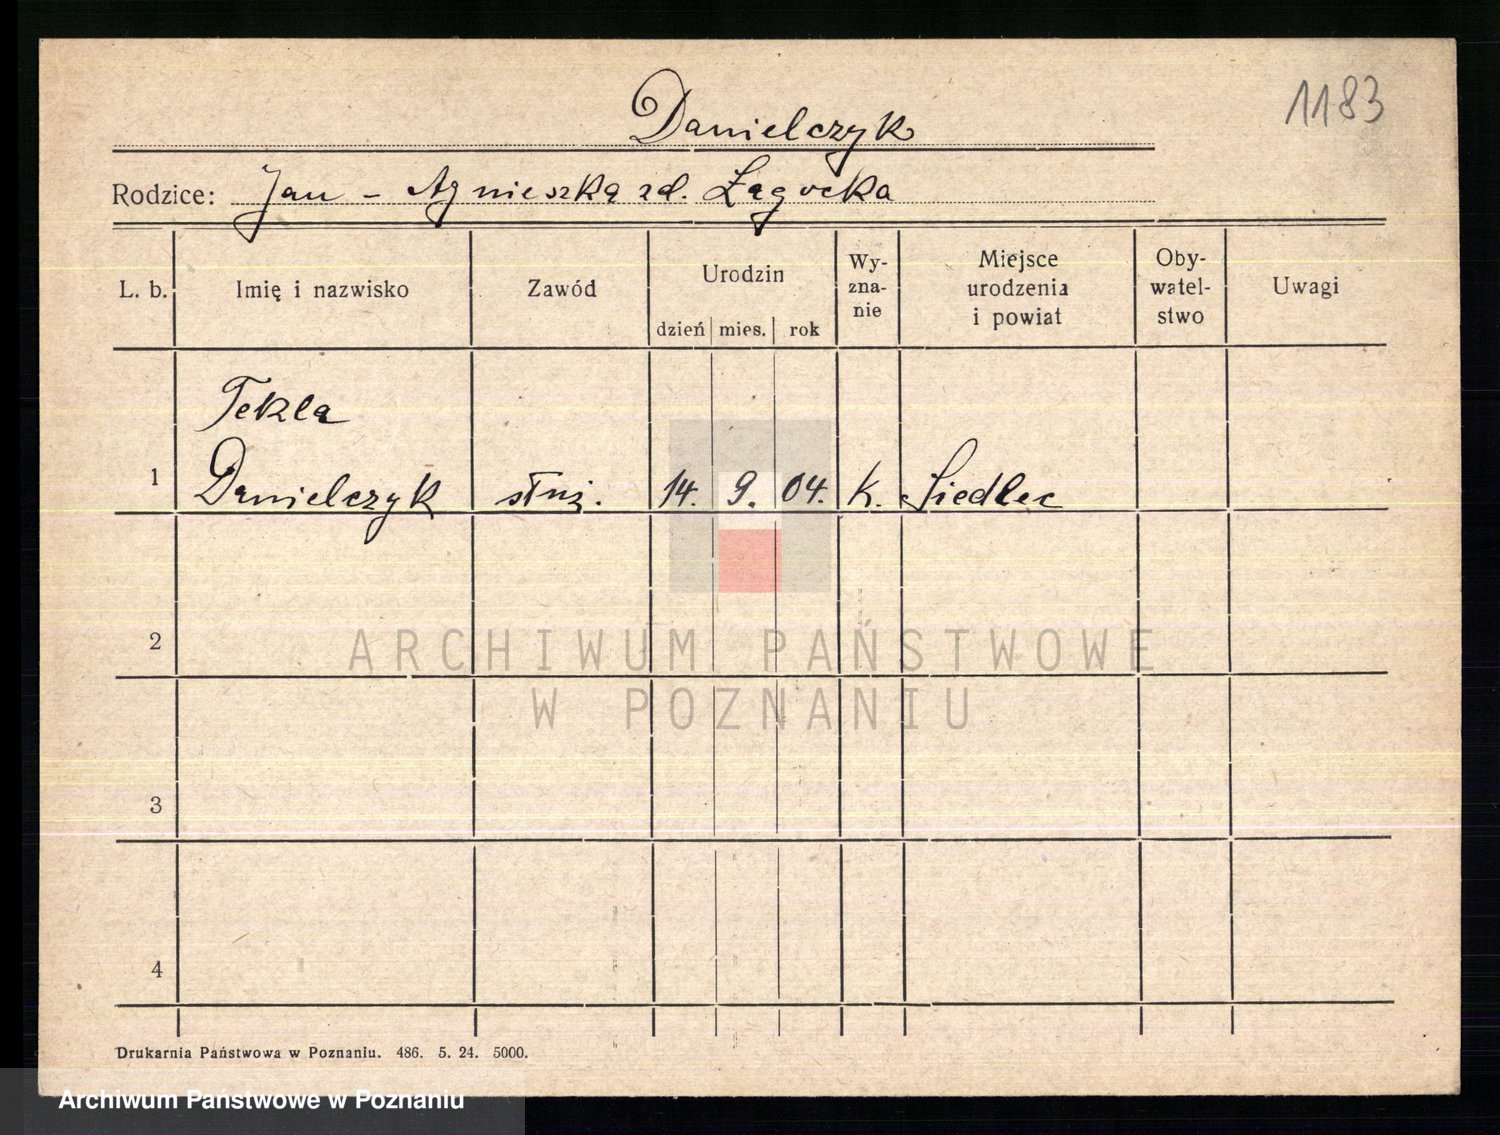 1183
Danielczyk
Rodzice: Jan - Agnieszka zd. Łagocka
L. b. Imię i nazwisko Zawód Urodzin Wy-zna-nie Miejsce urodzenia i powiat Oby-watel-stwo Uwagi
dzień mies. rok
Tekla
1 Danielczyk służ. 14. 9. 04. k. Siedlec
2
ARCHIWUM PAŃSTWOWE
W POZNANIU
3
4
Drukarnia Państwowa w Poznaniu. 486. 5. 24. 5000.
Archiwum Państwowe w Poznaniu